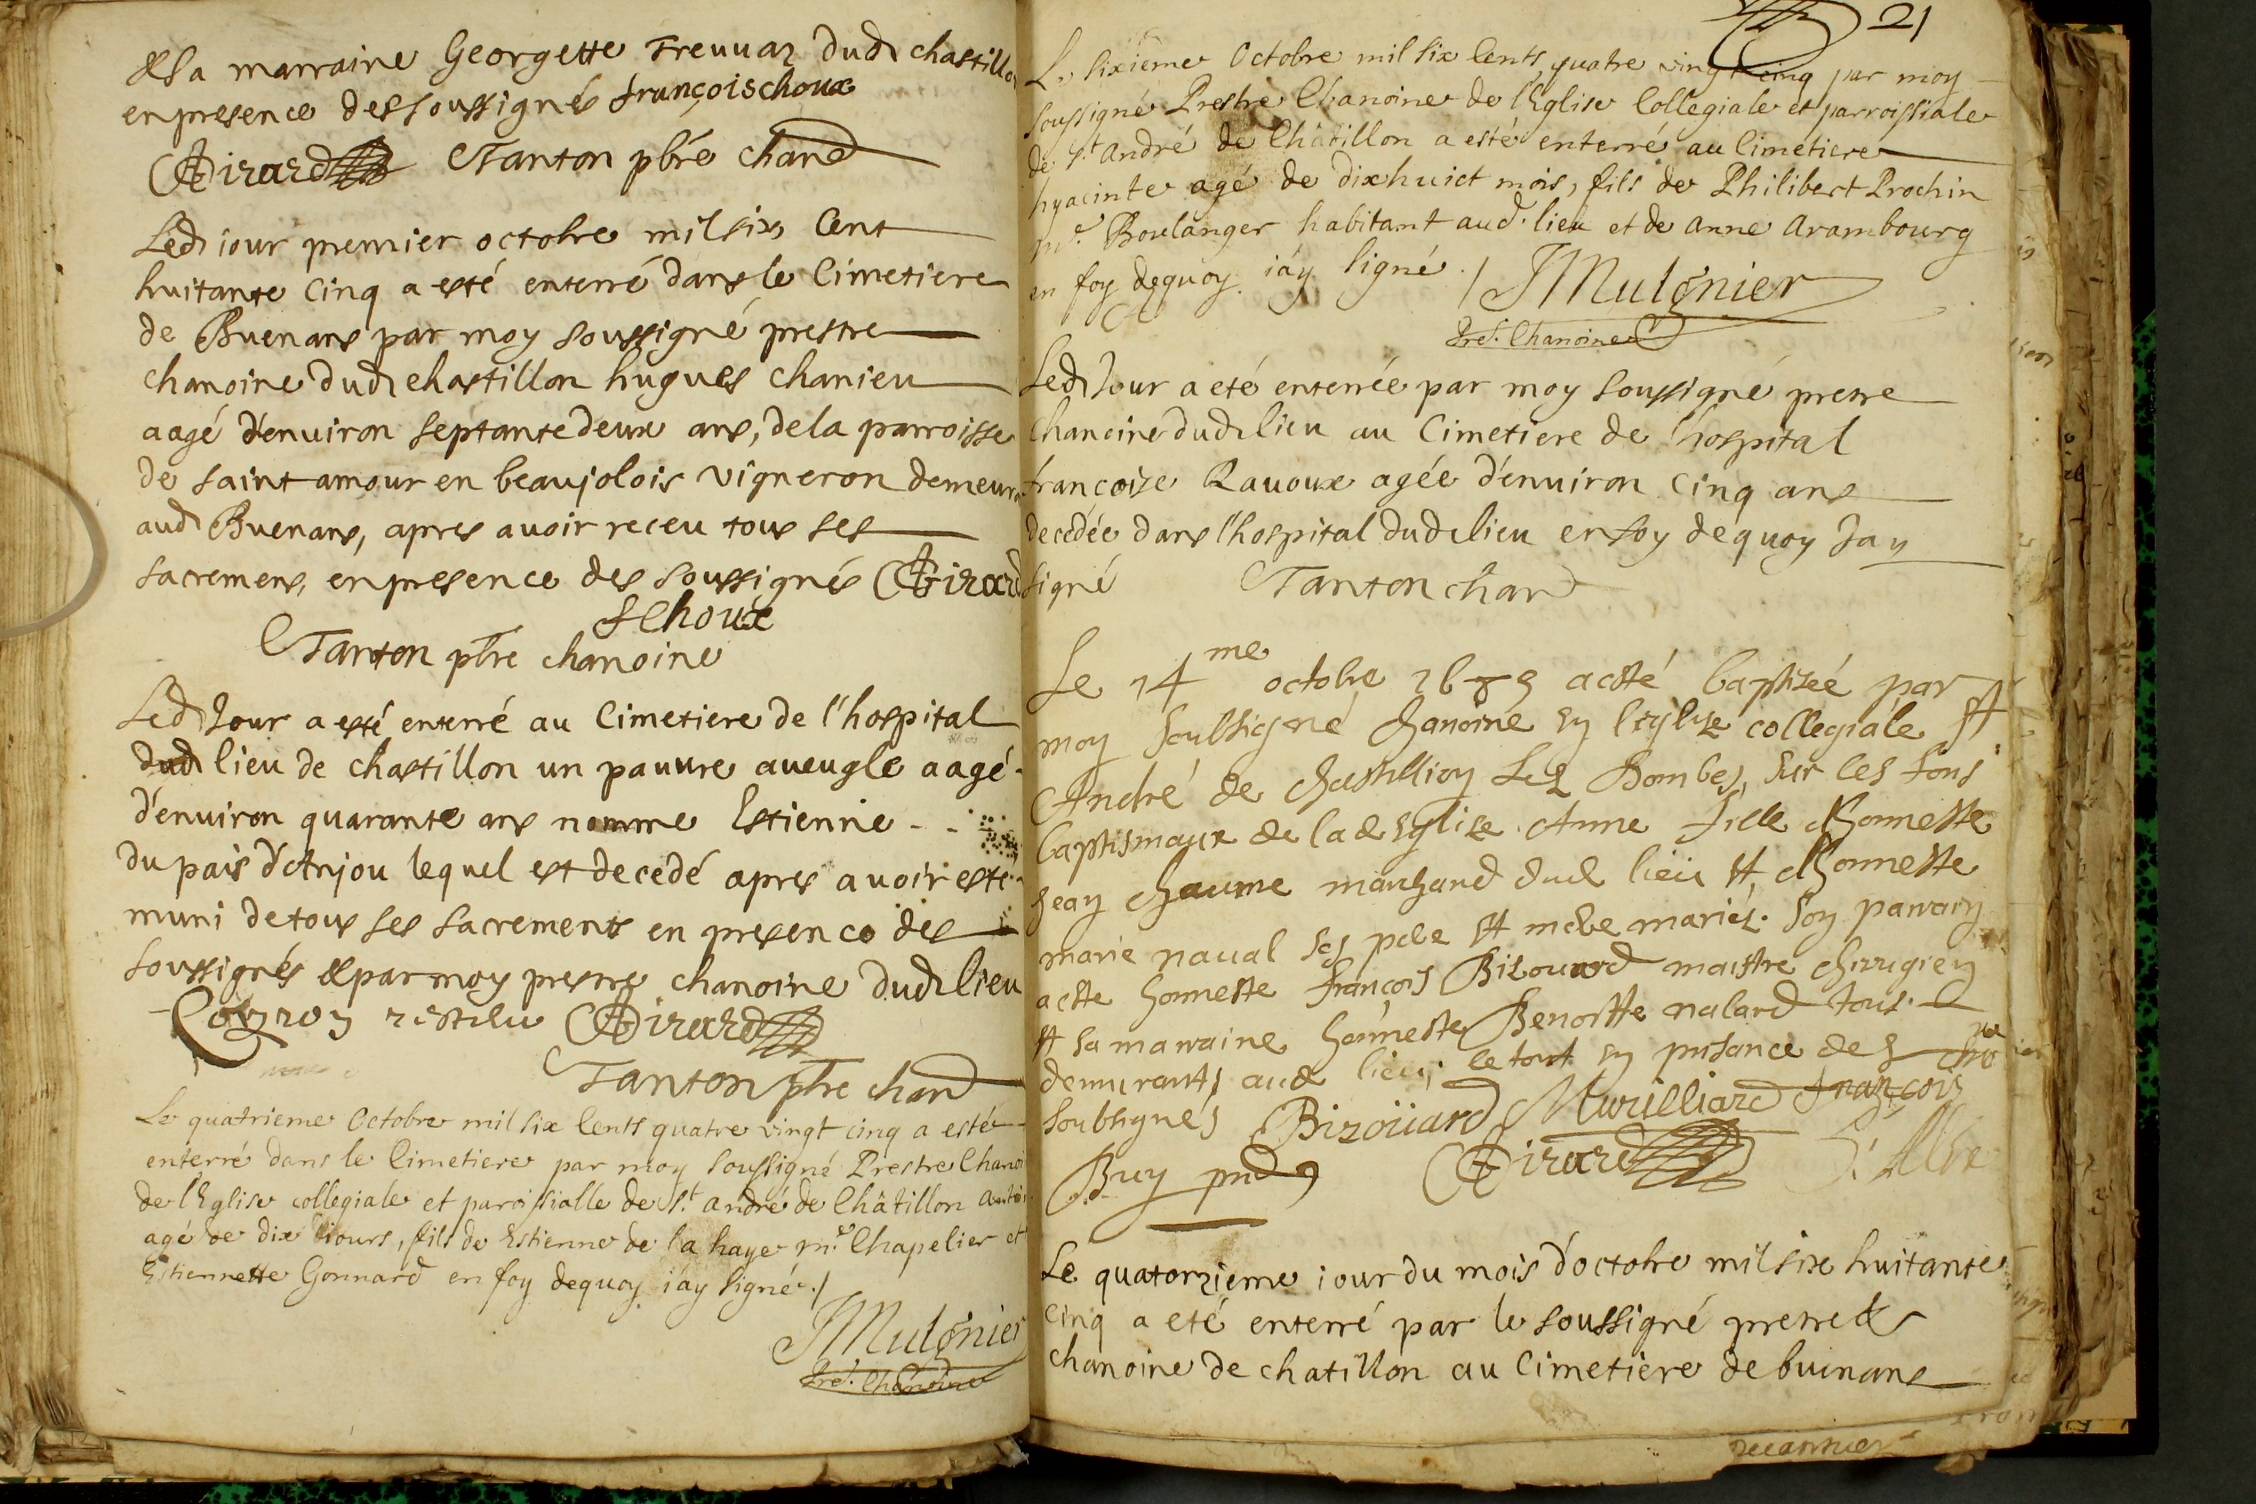 & sa marraine Georgette Treuuaz dud chastillo
en presence des soussignés françois choux
Girard Tanton pbre chane
Led iour premier octobre mil six Cent
huitante Cinq a esté enterré dans le Cimetiere
de Buenans par moy soussigné prestre
chanoine dud chastillon hugues chanieu
aagé d'enuiron septante deux ans, de la parroisse
de saint amour en beaujolois vigneron demeura
aud Buenans, apres auoir receu tous ses
sacremens, en presence des soussignés Girard
f Choux
Tanton pbre chanoine
Led Jour a esté enterré au Cimetiere de l'hospital
dud lieu de chastillon un pauure aueugle aagé
d'enuiron quarante ans nomme Estienne - -
du pais d'Anjou lequel est decedé apres auoir esté
muni de tous ses sacrements en presence des
soussignés & par moy prestre chanoine dud lieu
Girard
Tanton pbre chan
Le quatrieme Octobre mil six Cents quatre vingt cinq a esté
enterré dans le Cimetiere par moy soussigné Prestre Chanoi
de l'Eglise collegiale et paroissialle de St. andré de Châtillon
agé de dix iours, fils de Estienne de la haye me. Chapelier et
Estiennette Gonnard en foy dequoy i'ay signé ./
JMulonier
Pre. Chanoine
21
Le sixieme Octobre mil six Cents quatre vingt cinq par moy
soussigné Prestre Chanoine de l'Eglise Collegiale et parroissiale
de St. André de Châtillon a esté enterré au Cimetiere
hyacinte agé de dixhuict mois, fils de Philibert Prochin
me. Boulanger habitant aud. lieu et de Anne Arambourg
en foy dequoy i'ay signé ./ JMulonier
Pre. Chanoine
Led Jour a eté enterrée par moy soussigné prestre
Chanoine dud lieu au Cimetiere de l'hospital
françoize Rauoux agée d'enuiron Cinq ans
decedée dans l'hospital dud lieu en foy dequoy Jay
signé Tanton chan
Le 14me octobre 1685 a esté baptizée par
moy soubsigné chanoine en l'esglize collegiale St
André de Chastillion Les Dombes, sur les fons
baptismaux de lad esglize Anne fille d'honneste
Jean Chaume marchand dud lieu et d'honneste
marie naual ses pere et mere mariés. Son parrain
a esté honneste françois Bizouard maistre chirugien
et sa marraine honneste Benoitte nalard tous
demeurants aud lieu, le tout en presance des
soubsignés Bizoüard Murilliard françois
Buy Girard
Le quatorzieme iour du mois d'octobre mil six huitante
cinq a eté enterré par le soussigné prestre &
chanoine de chatillon au Cimetiere de buinans